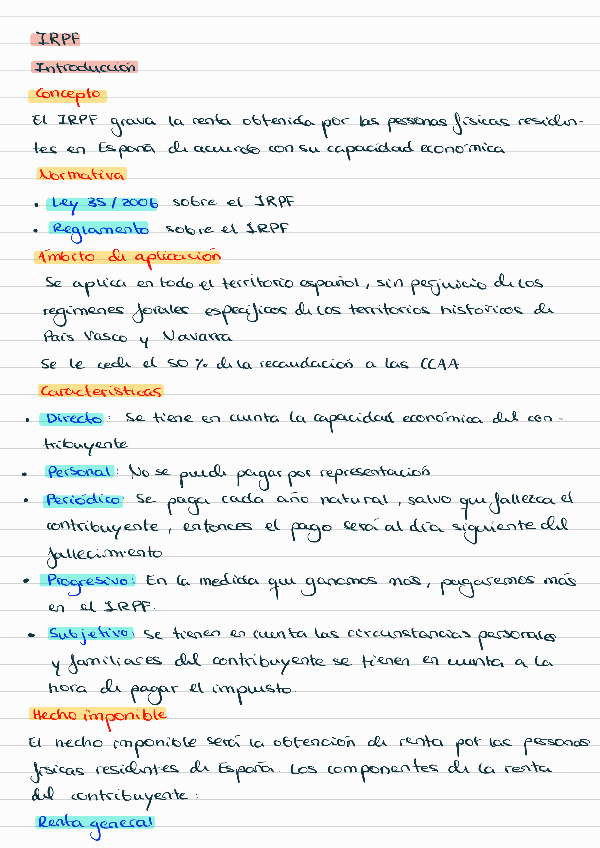 IRPF
Introducción
Concepto
El IRPF grava la renta obtenida por las personas físicas residen-
tes en España de acuerdo con su capacidad económica
Normativa
• Ley 35/2006 sobre el IRPF
• Reglamento sobre el IRPF
Ámbito de aplicación
Se aplica en todo el territorio español, sin perjuicio de los
regímenes forales específicos de los territorios históricos de
País Vasco y Navarra
Se le cede el 50 % de la recaudación a las CCAA
Características
• Directo: Se tiene en cuenta la capacidad económica del con-
tribuyente
• Personal: No se puede pagar por representación
• Periódico: Se paga cada año natural, salvo que fallezca el
contribuyente, entonces el pago será al día siguiente del
fallecimiento
• Progresivo: En la medida que ganamos mas, pagaremos más
en el IRPF.
• Subjetivo: Se tienen en cuenta las circunstancias personales
y familiares del contribuyente se tienen en cuenta a la
hora de pagar el impuesto.
Hecho imponible
El hecho imponible será la obtención de renta por las personas
físicas residentes de España. Los componentes de la renta
del contribuyente:
Renta general